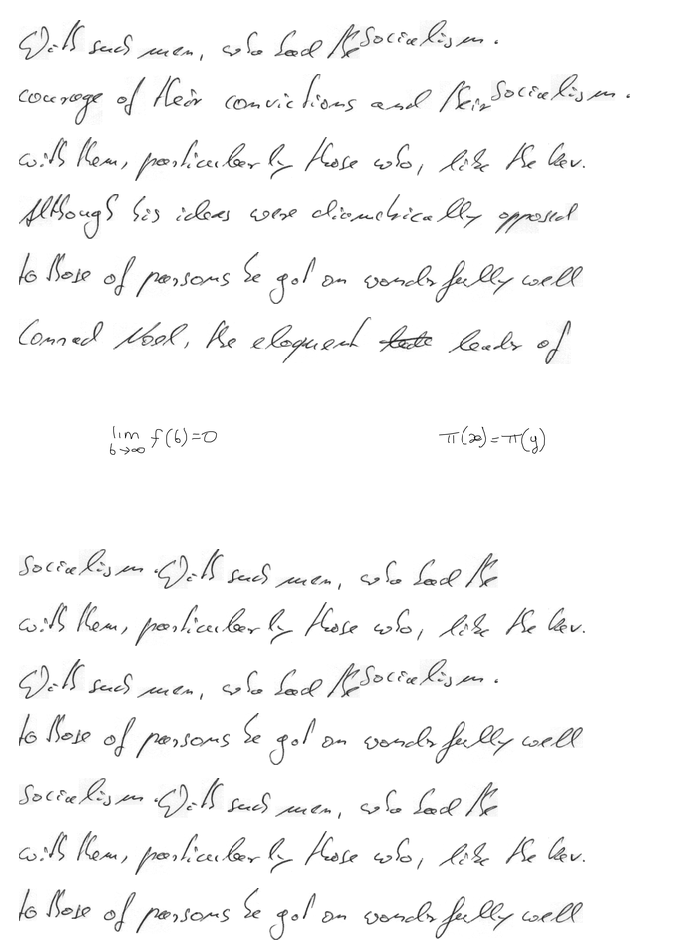 With such men, who had the Socialism.
courage of their convictions and their Socialism.
with them, particularly those who, like the Rev.
Although his ideas were diametrically opposed
to those of parsons he got on wonderfully well
Conrad Noel, the eloquent leader of
lim b→∞ f(b)=0 π(x)=π(y)
Socialism. With such men, who had the
with them, particularly those who, like the Rev.
With such men, who had the Socialism.
to those of parsons he got on wonderfully well
Socialism. With such men, who had the
with them, particularly those who, like the Rev.
to those of parsons he got on wonderfully well